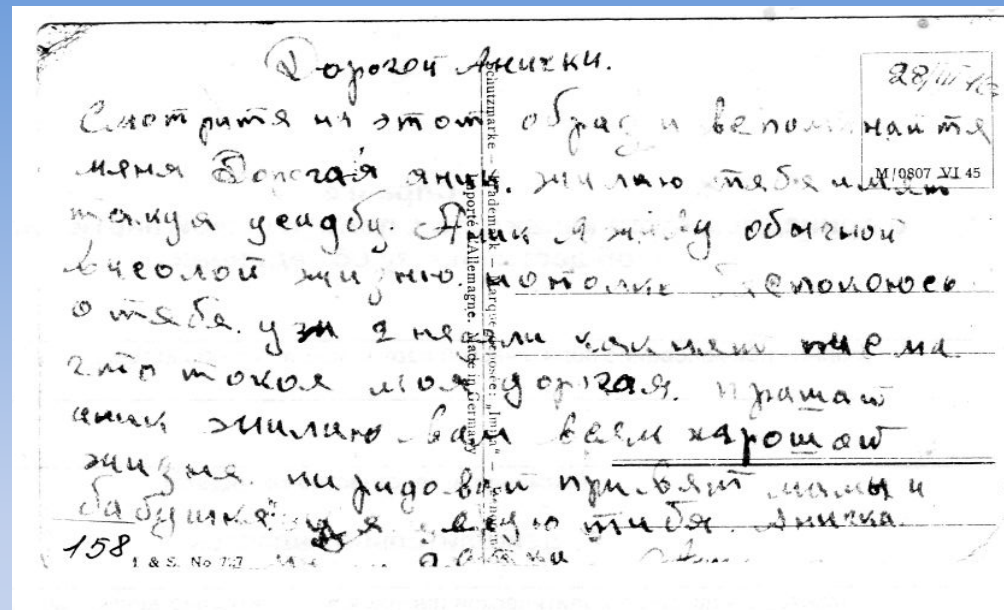 Дорогой Анички.
28/III 46
Смотритя на этот образ и вспоминайтя
мяня Дорогая яник. жилаю тябя имят
такуя усадбу. Аник я живу обычной
вчеолой жизню. но только беспокоюсь
о тябя. уже 2 недели как нят писма.
что токоя моя доргая. прашай
аник жилаю вам всям харошай
жизня. пиридовай привят мамы и
бабушкя
тибя. Аничка.
Schutzmarke – Trademark – Marque déposée: „Imula“ –
Importé d'Allemagne. Made in Germany
M/0807 VI 45
158
1 & S. No 727